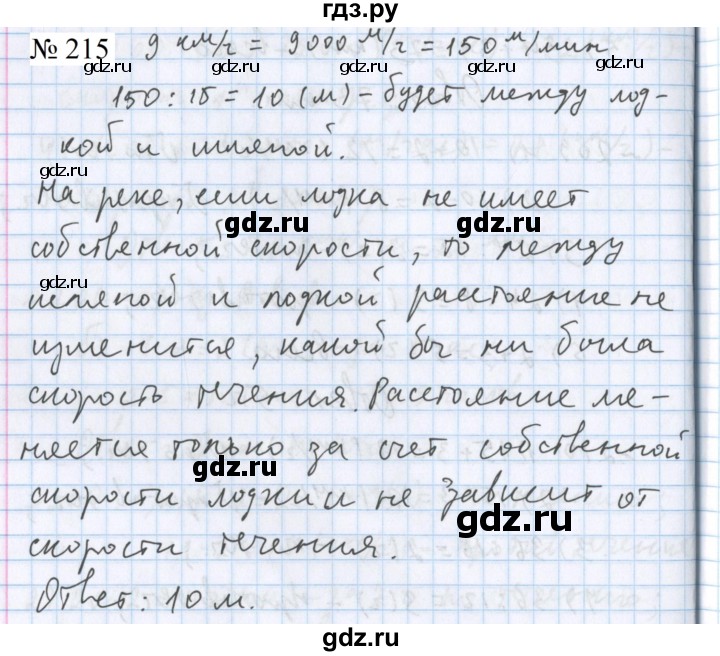 гдз.ру
№ 215 9 км/г = 9000 м/г = 150 м/мин
gdz.ru gdz.ru gdz.ru gdz.ru
150 : 15 = 10 (м) – будет между лод-
кой и шляпой.
gdz.ru
На реке, если лодка не имеет
gdz.ru gdz.ru
собственной скорости, то между
gdz.ru gdz.ru
шляпой и лодкой расстояние не
изменится, какой бы ни была
gdz.ru gdz.ru
скорость течения. Расстояние ме-
няется только за счет собственной
gdz.ru
скорости лодки и не зависит от
gdz.ru gdz.ru
скорости течения.
gdz.ru gdz.ru
Ответ: 10 м.
gdz.ru